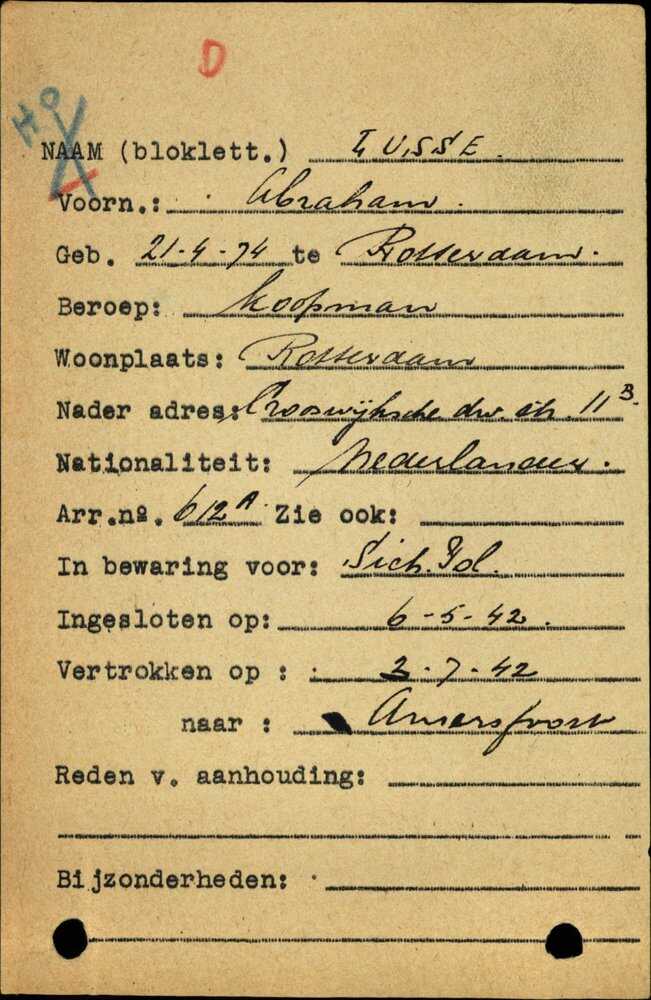 D
NAAM (bloklett.) LUSSE.
Voorn.: Abraham.
Geb. 21-4-74 te Rotterdam.
Beroep: koopman
Woonplaats: Rotterdam
Nader adres: Crooswijksche dw. str. 11B.
Nationaliteit: Nederlander.
Arr.nº. 612A Zie ook:
In bewaring voor: Sich. Pol.
Ingesloten op: 6-5-42.
Vertrokken op : 2-7-42
naar : Amersfoort
Reden v. aanhouding:
Bijzonderheden: